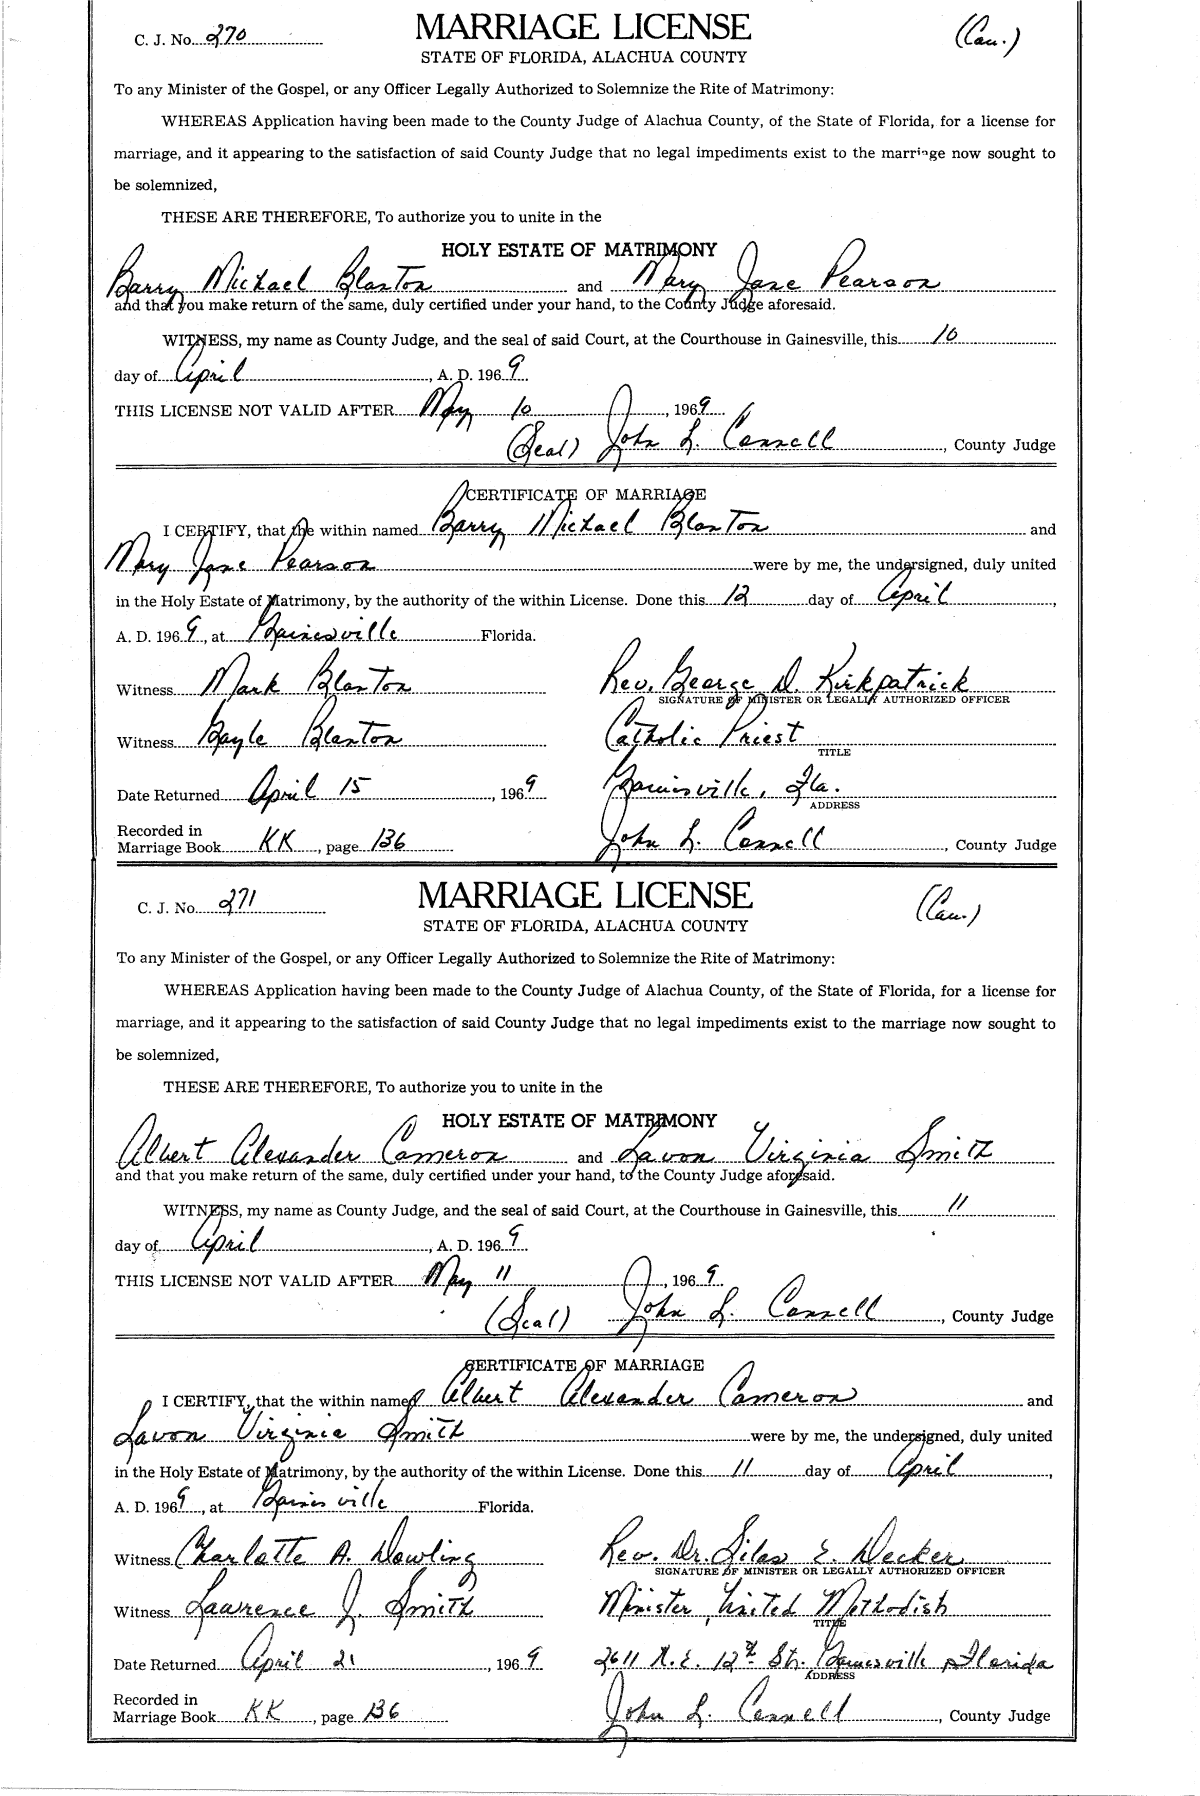 C. J. No. 270 MARRIAGE LICENSE (Cau.)
STATE OF FLORIDA, ALACHUA COUNTY
To any Minister of the Gospel, or any Officer Legally Authorized to Solemnize the Rite of Matrimony:
WHEREAS Application having been made to the County Judge of Alachua County, of the State of Florida, for a license for
marriage, and it appearing to the satisfaction of said County Judge that no legal impediments exist to the marriage now sought to
be solemnized,
THESE ARE THEREFORE, To authorize you to unite in the
HOLY ESTATE OF MATRIMONY
Barry Michael Blanton and Mary Jane Pearson
and that you make return of the same, duly certified under your hand, to the County Judge aforesaid.
WITNESS, my name as County Judge, and the seal of said Court, at the Courthouse in Gainesville, this 10
day of April, A. D. 1969
THIS LICENSE NOT VALID AFTER May 10, 1969
(Seal) John L. Connell, County Judge
CERTIFICATE OF MARRIAGE
I CERTIFY, that the within named Barry Michael Blanton and
Mary Jane Pearson were by me, the undersigned, duly united
in the Holy Estate of Matrimony, by the authority of the within License. Done this 12 day of April,
A. D. 1969, at Gainesville Florida.
Witness Mark Blanton Rev. George D. Kirkpatrick
SIGNATURE OF MINISTER OR LEGALLY AUTHORIZED OFFICER
Witness Gayle Blanton Catholic Priest
TITLE
Date Returned April 15, 1969 Gainesville, Fla.
ADDRESS
Recorded in
Marriage Book KK, page 136 John L. Connell, County Judge
C. J. No. 271 MARRIAGE LICENSE (Cau.)
STATE OF FLORIDA, ALACHUA COUNTY
To any Minister of the Gospel, or any Officer Legally Authorized to Solemnize the Rite of Matrimony:
WHEREAS Application having been made to the County Judge of Alachua County, of the State of Florida, for a license for
marriage, and it appearing to the satisfaction of said County Judge that no legal impediments exist to the marriage now sought to
be solemnized,
THESE ARE THEREFORE, To authorize you to unite in the
HOLY ESTATE OF MATRIMONY
Albert Alexander Cameron and Lavon Virginia Smith
and that you make return of the same, duly certified under your hand, to the County Judge aforesaid.
WITNESS, my name as County Judge, and the seal of said Court, at the Courthouse in Gainesville, this 11
day of April, A. D. 1969
THIS LICENSE NOT VALID AFTER May 11, 1969
(Seal) John L. Connell, County Judge
CERTIFICATE OF MARRIAGE
I CERTIFY, that the within named Albert Alexander Cameron and
Lavon Virginia Smith were by me, the undersigned, duly united
in the Holy Estate of Matrimony, by the authority of the within License. Done this 11 day of April,
A. D. 1969, at Gainesville Florida.
Witness Charlotte A. Dowling Rev. Dr. Silas E. Decker
SIGNATURE OF MINISTER OR LEGALLY AUTHORIZED OFFICER
Witness Lawrence J. Smith Minister, United Methodish
TITLE
Date Returned April 21, 1969 2611 N. E. 12th St. Gainesville, Florida
ADDRESS
Recorded in
Marriage Book KK, page 136 John L. Connell, County Judge